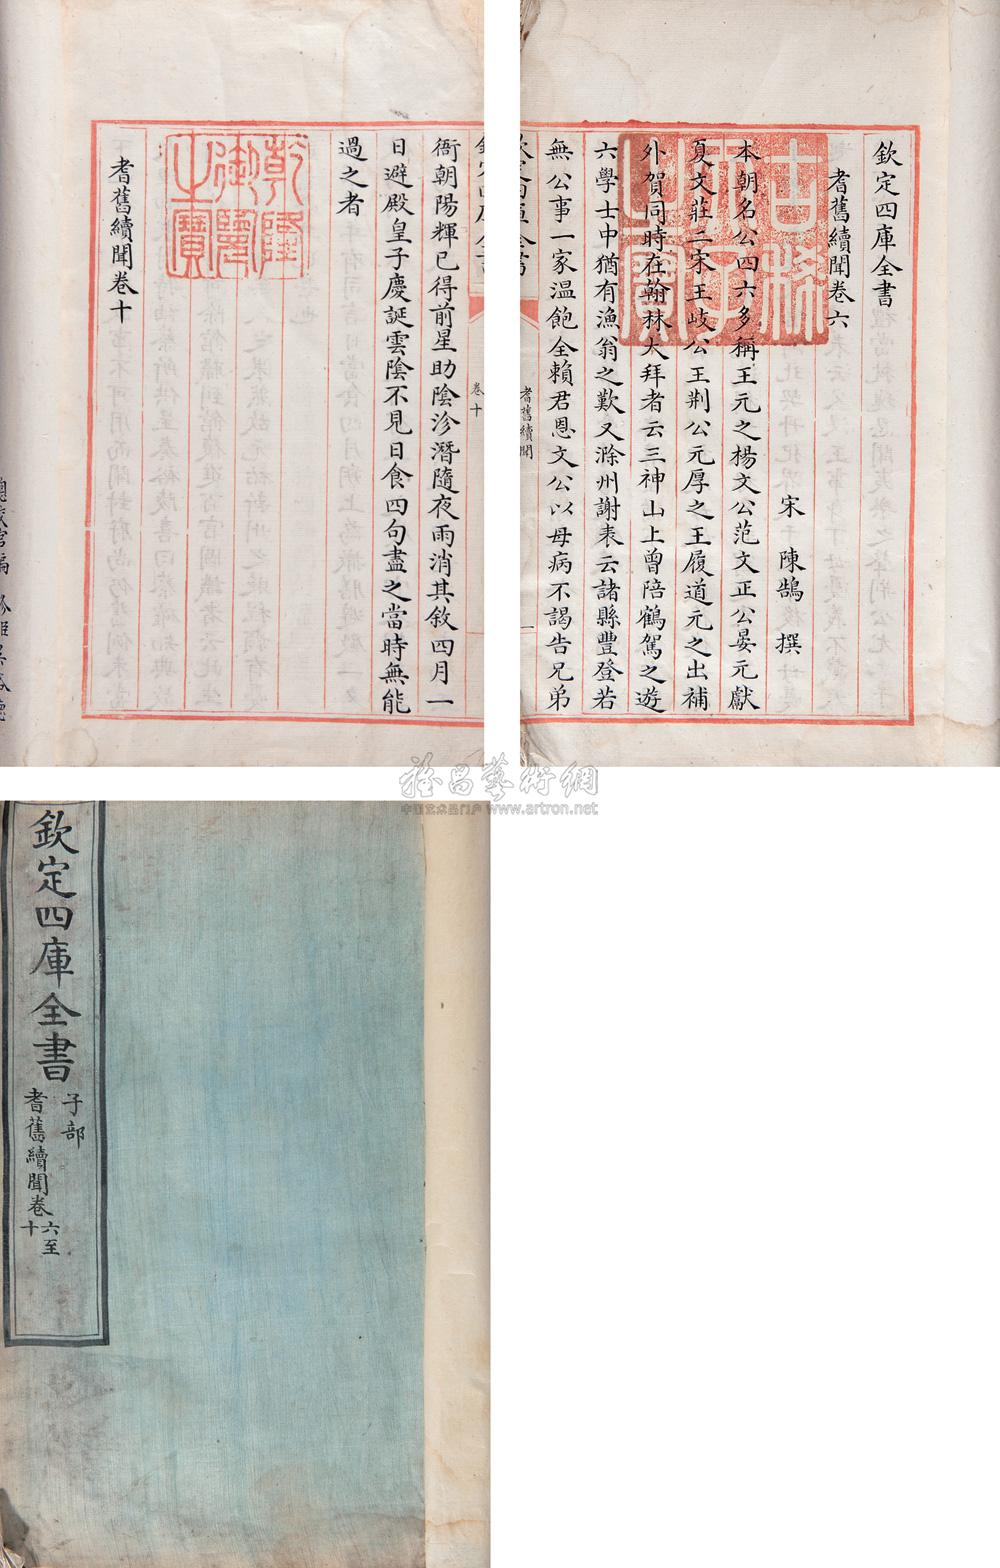 欽定四庫全書
耆舊續聞卷六
宋 陳鵠 撰
本朝名公四六多稱王元之楊文公范文正公晏元獻
夏文莊二宋王岐公王荆公元厚之王履道元之出補
外賀同時在翰林大拜者云三神山上曾陪鶴駕之遊
六學士中猶有漁翁之歎又滁州謝表云諸縣豐登若
無公事一家溫飽全賴君恩文公以母病不謁告兄弟
古稀天子之寶
耆舊續聞
一
卷十
衙朝陽輝已得前星助陰沴潛隨夜雨消其敘四月一
日避殿皇子慶誕雲陰不見日食四句盡之當時無能
過之者
乾隆御覽之寶
耆舊續聞卷十
雅昌藝術網
中国艺术品门户 www.artron.net
欽定四庫全書
子部
耆舊續聞卷六至十